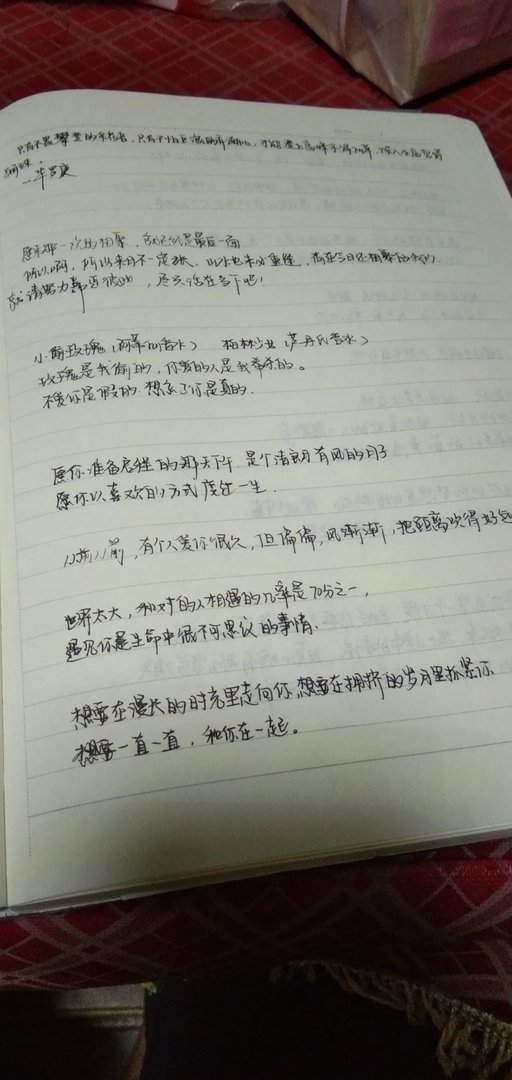 只有不畏攀登的采药者，只有不怕巨浪的弄潮儿，才能登上高峰采得仙草，深入水底觅得
骊珠。
—华罗庚
原来那一次的相聚，就已经是最后一面
所以啊，所以来日不一定方长，山水也未必重逢，尚在今日还相聚的我们，
就请努力靠近彼此，尽兴活在当下吧！
小偷玫瑰（阿蒂仙香水） 柏林少女（芦丹氏香水）
玫瑰是我偷的，你爱的人是我
不爱你是假的，想杀了你是真的。
愿你准备启程的那天下午，是个清朗有风的日子
愿你以喜欢的方式度过一生。
从前从前，有个人爱你很久，但偏偏，风渐渐，把距离吹得好远
世界太大，和对的人相遇的几率是70分之一，
遇见你是生命中很不可思议的事情。
想要在漫长的时光里走向你，想要在拥挤的岁月里抓紧你
想要一直一直，和你在一起。